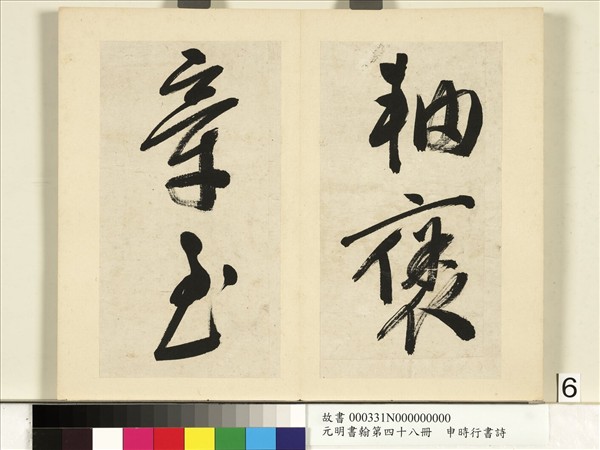 軸褒
章玉
6
故書 000331N000000000
元明書翰第四十八冊 申時行書詩